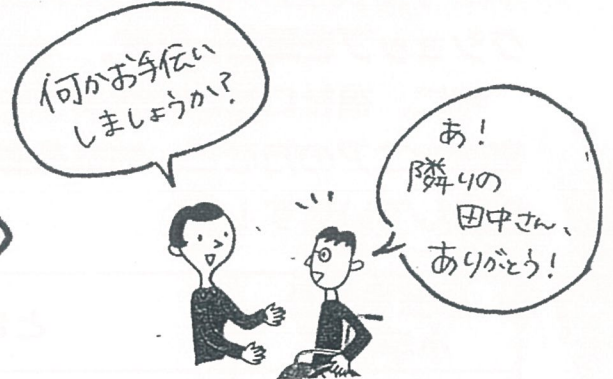 何かお手伝い
しましょうか?
あ!
隣りの
田中さん、
ありがとう!